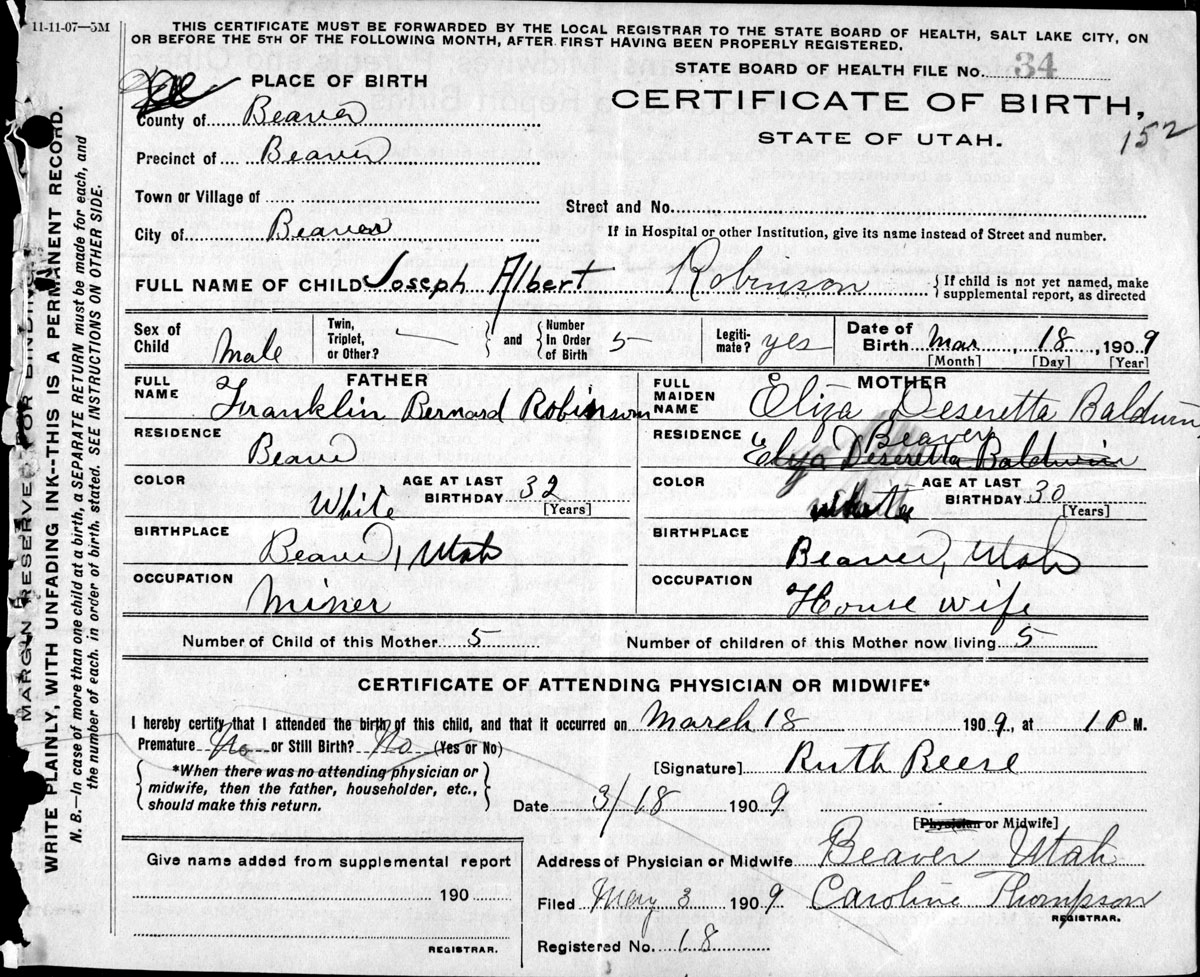 11-11-07—5M
THIS CERTIFICATE MUST BE FORWARDED BY THE LOCAL REGISTRAR TO THE STATE BOARD OF HEALTH, SALT LAKE CITY, ON
OR BEFORE THE 5TH OF THE FOLLOWING MONTH, AFTER FIRST HAVING BEEN PROPERLY REGISTERED.
STATE BOARD OF HEALTH FILE No. 34
PLACE OF BIRTH
CERTIFICATE OF BIRTH,
STATE OF UTAH.
152
County of Beaver
Precinct of Beaver
Town or Village of
Street and No.
City of Beaver
If in Hospital or other Institution, give its name instead of Street and number.
FULL NAME OF CHILD Joseph Albert Robinson { If child is not yet named, make supplemental report, as directed
Sex of Child Male
Twin, Triplet, or Other? —
and { Number In Order of Birth 5
Legiti-mate? yes
Date of Birth Mar, 18, 1909
[Month] [Day] [Year]
FATHER
FULL NAME Franklin Bernard Robinson
RESIDENCE Beaver
COLOR White AGE AT LAST BIRTHDAY 32
[Years]
BIRTHPLACE Beaver, Utah
OCCUPATION Miner
MOTHER
FULL MAIDEN NAME Eliza Deseretta Baldwin
RESIDENCE Beaver
Eliza Deseretta Baldwin
COLOR white AGE AT LAST BIRTHDAY 30
[Years]
BIRTHPLACE Beaver, Utah
OCCUPATION House wife
Number of Child of this Mother 5
Number of children of this Mother now living 5
CERTIFICATE OF ATTENDING PHYSICIAN OR MIDWIFE*
I hereby certify that I attended the birth of this child, and that it occurred on March 18 1909, at 1 P M.
Premature No or Still Birth? No (Yes or No)
*When there was no attending physician or
midwife, then the father, householder, etc.,
should make this return.
[Signature] Ruth Reese
Date 3/18 1909
[Physician or Midwife]
Give name added from supplemental report
190
REGISTRAR.
Address of Physician or Midwife Beaver Utah
Filed May 3 1909 Caroline Thompson
REGISTRAR.
Registered No. 18
MARGIN RESERVED FOR BINDING
WRITE PLAINLY, WITH UNFADING INK--THIS IS A PERMANENT RECORD.
N. B.—In case of more than one child at a birth, a SEPARATE RETURN must be made for each, and
the number of each, in order of birth, stated. SEE INSTRUCTIONS ON OTHER SIDE.